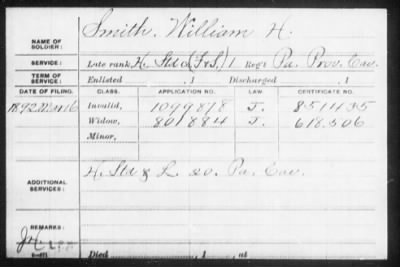 Smith, William H.
NAME OF SOLDIER:
SERVICE: Late rank, H. Std & (F&S) 1 Reg't Pa. Prov. Cav.
TERM OF SERVICE: Enlisted , 1 Discharged , 1
DATE OF FILING. CLASS. APPLICATION NO. LAW. CERTIFICATE NO.
1892 Mar 16 Invalid, 1099878 J. 851435
Widow, 801884 J. 618,506
Minor,
ADDITIONAL SERVICES: H. Std & L 20. Pa. Cav.
REMARKS:
Died , 1 , at